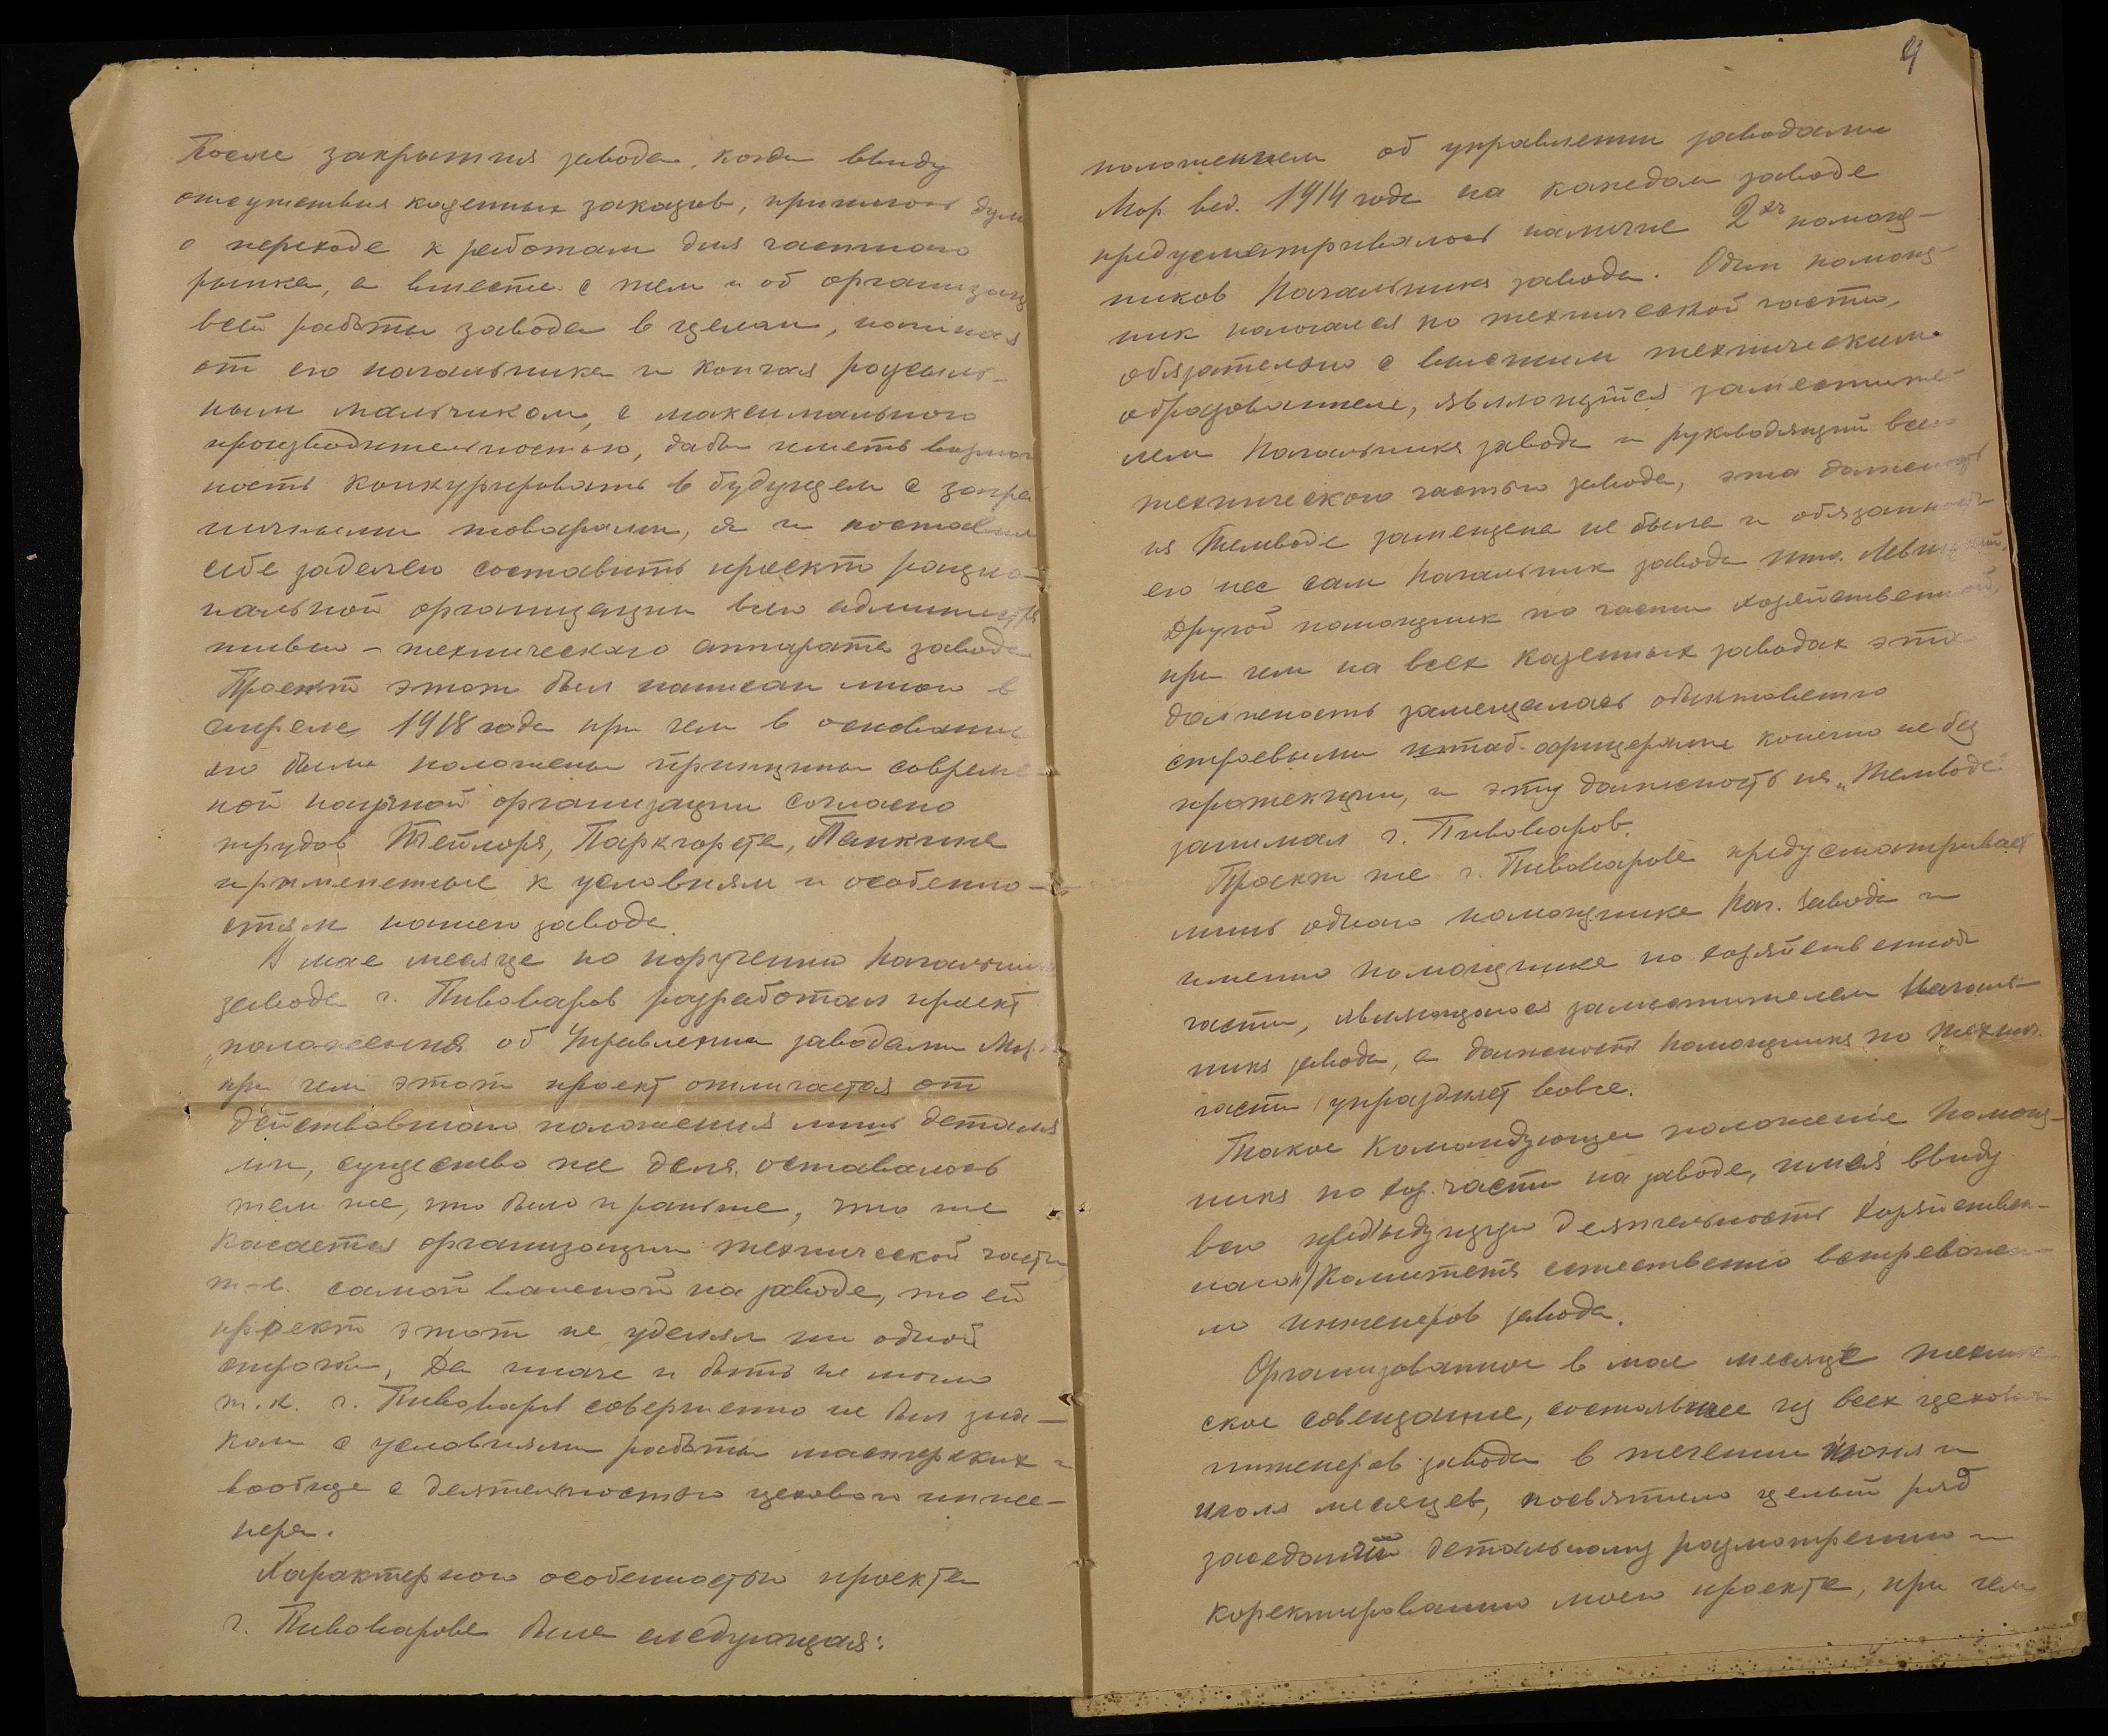 После закрытия завода, когда ввиду
отсутствия казенных заказов, пришлось дума
о переходе к работам для частного
рынка, а вместе с тем и об организац
всей работы завода в целом, начиная
от его начальника и кончая рассыль-
ным мальчиком, с максимального
производительностью, дабы иметь возмож
ность конкурировать в будущем с загра
ничными товарами, я и поставил
себе задачею составить проект рацио-
нальной организации всего администра
тивно-технического аппарата завода
Проект этот был написан мною в
апреле 1918 года при чем в основание
его были положены принципы совреме
ной научной организации согласно
трудов Тейлора, Паркгорста, Панкина
примененные к условиям и особенно-
стям нашего завода.
В мае месяце по поручению Начальника
завода г. Пивоваров разработал проект
„положения об Управлении заводами Мор.
при чем этот проект отличается от
действовавшего положения лишь деталя
ми, существо же дела оставалось
тем же, что было и раньше, что же
касается организации технической части
т-е. самой важной на заводе, то ей
проект этот не уделял ни одной
строчки, Да иначе и быть не могло
т.к. г. Пивоваров совершенно не был зна-
ком с условиями работы мастерских и
вообще с деятельностью цехового инже-
нера.
Характерного особенностью проекта
г. Пивоварова была следующая:
4
положением об управлении заводами
Мор. вед. 1914 года на каждом заводе
предусматривалось наличие 2х помощ-
ников Начальника завода. Один помощ-
ник полагался по технической части,
обязательно с высшим техническим
образованием, являющийся заместите-
лем Начальника завода и руководящий всею
техническою частью завода, эта должность
на Темводе замещена не была и обязанности
его нес сам Начальник завода инж. Левицкий,
Другой помощник по части хозяйственной,
при чем на всех казенных заводах эта
должность замещалась обыкновенно
строевыми штаб-офицерами конечно не без
протекции, и эту должность на „Темводе“
занимал г. Пивоваров.
Проект же г. Пивоварова предусматривает
лишь одного помощника Нач. завода и
именно помощника по хозяйственной
части, являющегося заместителем Началь-
ника завода, а должность помощника по технич.
части упраздняет вовсе.
Такое командующее положение помощ-
ника по хоз. части на заводе, имея ввиду
всю предыдущую деятельность Хозяйствен-
ного Комитета естественно встревожи-
ло инженеров завода.
Организованное в мае месяце техниче
ское совещание, состоявшее из всех цеховых
инженеров завода в течении июня и
июля месяцев, посвятило целый ряд
заседаний детальному рассмотрению и
коректированию моего проекта, при чем